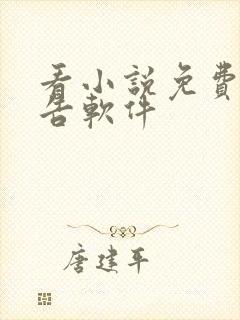 看小說免費
告軟件
唐建平